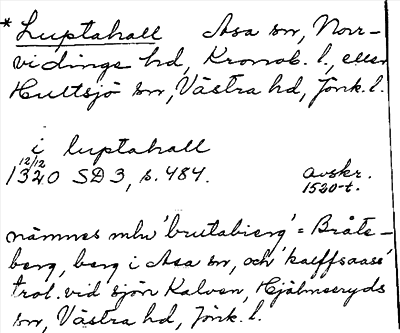 * Luptahall Asa sn, Norr-
vidinge hd, Kronob. l., eller
Hultsjö sn, Västra hd, Jönk. l.
i luptahall
12/12
1320 SD 3, s. 484. avskr.
1520-t.
nämnes mlu 'brutabierg' = Bråte-
berg, berg i Asa sn, och 'kalffsaass'
trol. vid sjön Kalven, Hjälmseryds
sn, Västra hd, Jönk. l.